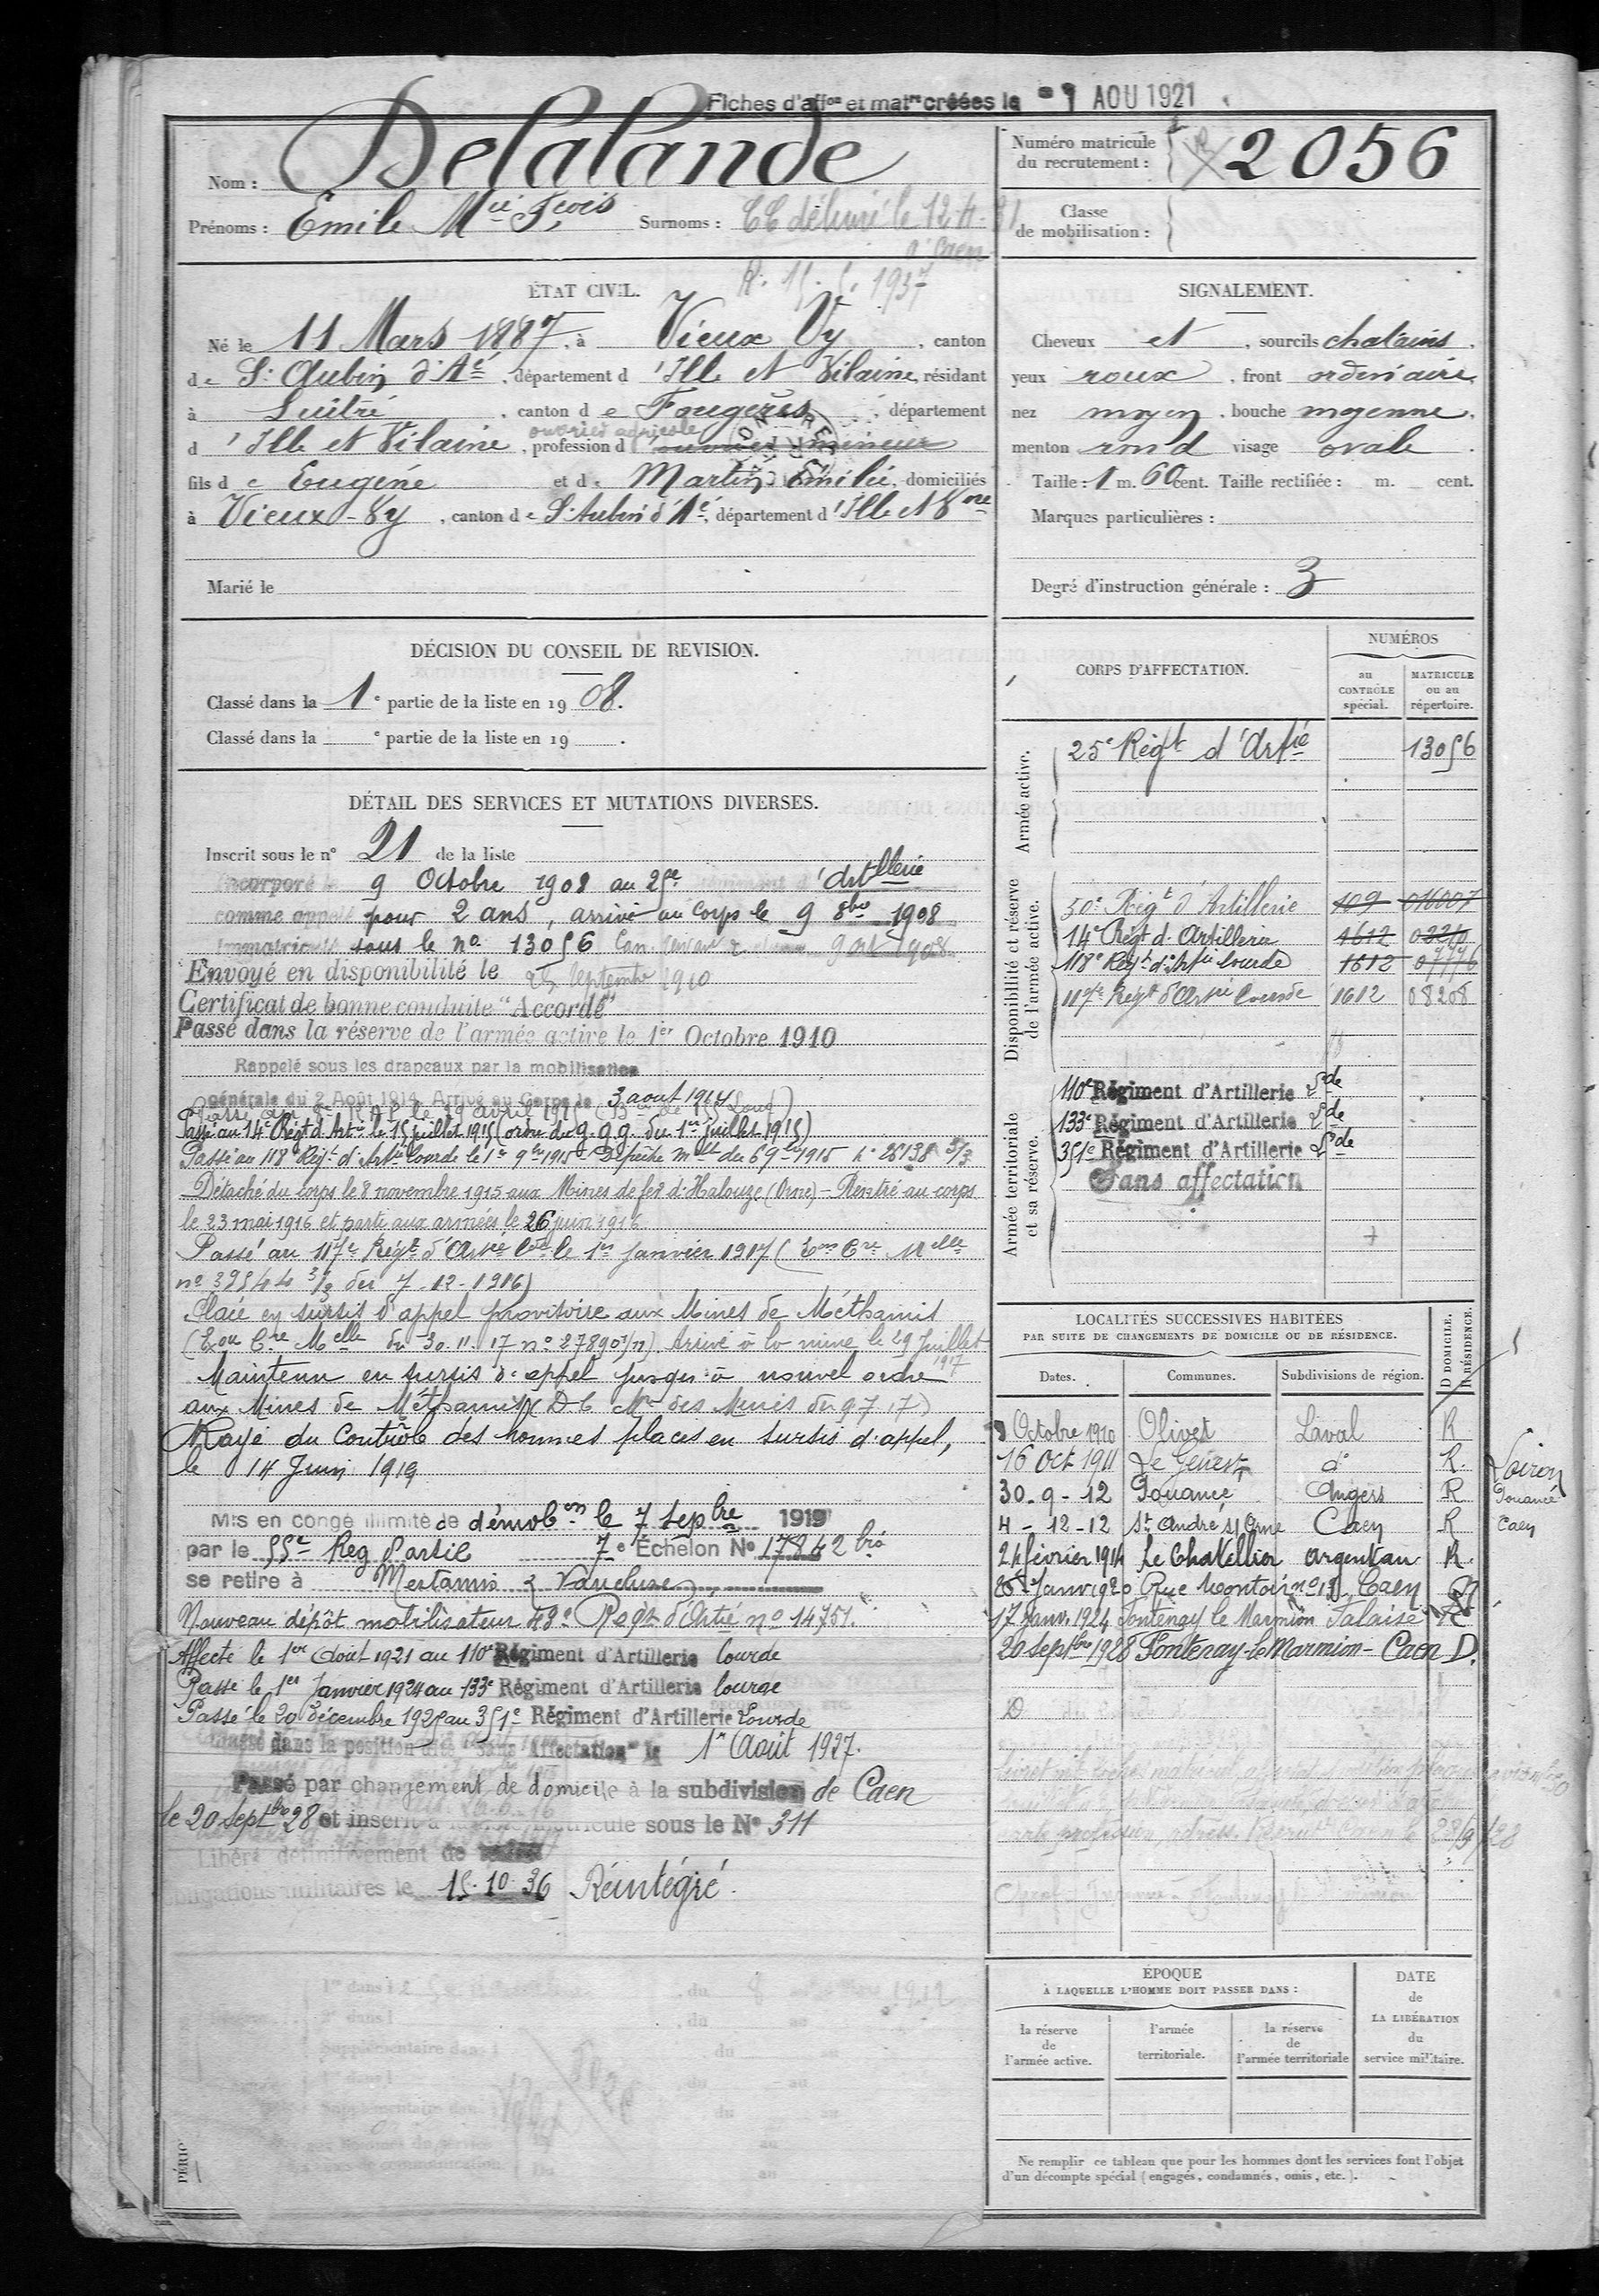 Fiches d'aff^on et mat^re créées le - 1 AOU 1921
Nom : Delalande
Prénoms : Emile M^ie F^çois Surnoms : CC délivré le 12-4-31
à Caen
1937
Numéro matricule du recrutement : 2056
Classe de mobilisation :
ÉTAT CIVIL.
Né le 11 Mars 1887, à Vieux Vy, canton
de S^t Aubin d'A^é, département d'Ille et Vilaine, résidant
à Luitré, canton de Fougères, département
d'Ille et Vilaine, profession d ouvrier agricole ouvrier mineur
fils de Eugène et de Martin Emilie, domiciliés
à Vieux-Vy, canton de S^t Aubin d'A^é, département d'Ille et V^ne
Marié le
SIGNALEMENT.
Cheveux et, sourcils chatains,
yeux roux, front ordinaire,
nez moyen, bouche moyenne,
menton rond visage ovale.
Taille : 1 m. 60 cent. Taille rectifiée : m. cent.
Marques particulières :
Degré d'instruction générale : 3
DÉCISION DU CONSEIL DE REVISION.
Classé dans la 1^e partie de la liste en 1908.
Classé dans la ^e partie de la liste en 19 .
DÉTAIL DES SERVICES ET MUTATIONS DIVERSES.
Inscrit sous le n° 21 de la liste
Incorporé le 9 Octobre 1908 au 25^e régiment d'Artillerie
comme appelé pour 2 ans, arrivé au Corps le 9 8^bre 1908
Immatriculé sous le n° 13056 9 oct 1908
Envoyé en disponibilité le 25 Septembre 1910
Certificat de bonne conduite "Accordé"
Passé dans la réserve de l'armée active le 1er Octobre 1910
Rappelé sous les drapeaux par la mobilisation
générale du 2 Août 1914. Arrivé au Corps le 3 aout 1914
Passé au le 29 avril 1915
Passé au 14^e Régt d'Art^ie le 15 juillet 1915 (ordre du g.q.g. du 1^er juillet 1915)
Passé au 118^e Régt d'Art^ie lourde le 1^er 9^bre 1915 Dépêche m^elle du 6 9^bre 1915 n° 25138 3/3
Détaché du corps le 8 novembre 1915 aux Mines de fer d'Halouze (Orne) - Rentré au corps
le 23 mai 1916 et parti aux armées le 26 juin 1916
Passé au 117^e Régt d'Art^ie L^de le 1^er Janvier 1917 (Ex^on C^re M^elle
n° 39544 3/3 du 7-12-1916)
Placé en sursis d'appel provisoire aux Mines de Méthamis
(Ex^on C^re M^elle du 30.11.17 n° 27890 1/11) Arrivé à la mine le 29 Juillet 1917
Maintenu en sursis d'appel jusqu'à nouvel ordre
aux Mines de Méthamis (D.C. M^re des Mines du 9 7 17)
Rayé du Contrôle des hommes placés en sursis d'appel,
le 14 Juin 1919
Mis en congé illimité de démob^on le 7 Sep^bre 1919
par le 55^e Reg d'artie 7^e Echelon N° 17842 bis
se retire à Metamis Vaucluse
Nouveau dépôt mobilisateur 48^e Regt d'Art^ie n° 14751.
Affecté le 1^er Aout 1921 au 110^e Régiment d'Artillerie lourde
Passé le 1^er Janvier 1924 au 133^e Régiment d'Artillerie lourde
Passé le 20 décembre 1925 au 351^e Régiment d'Artillerie Lourde
Classé dans la position dite "Sans Affectation" le 1^er Août 1927.
Passé par changement de domicile à la subdivision de Caen
le 20 Sept^bre 28 et inscrit à matricule sous le N° 311
Libéré définitivement de
obligations militaires le 15.10.36 Réintégré.
CORPS D'AFFECTATION.
NUMÉROS
au CONTRÔLE spécial.
MATRICULE ou au répertoire.
Armée active.
25^e Régt d'Art^ie 13056
Disponibilité et réserve de l'armée active.
50^e Régt d'Artillerie 109 016007
14^e Régt d'Artillerie 1612 02210
118^e Régt d'Art^ie lourde 1612 07776
117^e Régt d'Art^ie lourde 1612 08208
Armée territoriale et sa réserve.
110^e Régiment d'Artillerie L^de
133^e Régiment d'Artillerie L^de
351^e Régiment d'Artillerie L^de
Sans affectation
LOCALITÉS SUCCESSIVES HABITÉES
PAR SUITE DE CHANGEMENTS DE DOMICILE OU DE RÉSIDENCE.
Dates. Communes. Subdivisions de région. D DOMICILE. R RÉSIDENCE.
Octobre 1910 Olivet Laval R
16 Oct 1911 Le Genest d° R. Loiron
30-9-12 Pouancé Angers R Pouancé
4-12-12 St André s/ Orne Caen R Caen
24 février 1914 Le Chatellier Argentan R.
20 Janv 1920 Rue Montoir n° 12 Caen R
17 Janv. 1924 Fontenay le Marmion Falaise R
20 Sept^bre 1928 Fontenay-le-Marmion - Caen D.
D
28/9/28
ÉPOQUE
À LAQUELLE L'HOMME DOIT PASSER DANS :
la réserve de l'armée active.
l'armée territoriale.
la réserve de l'armée territoriale
DATE de LA LIBÉRATION du service militaire.
Ne remplir ce tableau que pour les hommes dont les services font l'objet
d'un décompte spécial (engagés, condamnés, omis, etc.).
PÉRIO